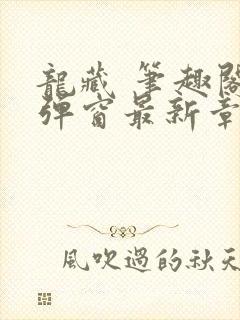 龍藏 筆趣閣
彈窗最新章
風吹過的秋天